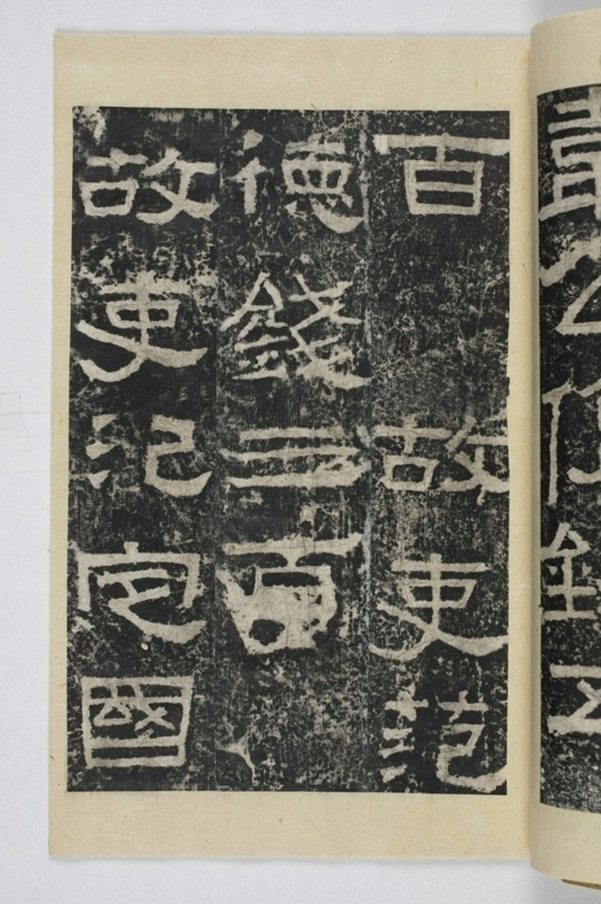 百故吏范
德錢三百
故吏氾定國